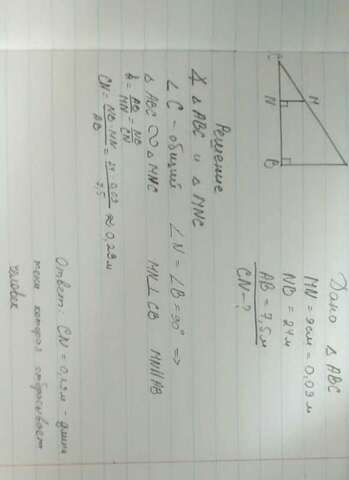 C
M
N
B
Дано Δ ABC
MN = 9см = 0,09 м
NB = 24 м
AB = 7,5 м
CN - ?
Решение
∡ Δ ABC и Δ MNC
∠ C - общий ∠ N = ∠ B = 90° ⇒
Δ ABC ∞ Δ MNC MN ⊥ CB MN || AB
k = AB/MN = NB/CN
CN = NB · MN / AB = 24 · 0,09 / 7,5 ≈ 0,29 м
Ответ: CN = 0,29 м - длина
тени которая отбрасывает
человек